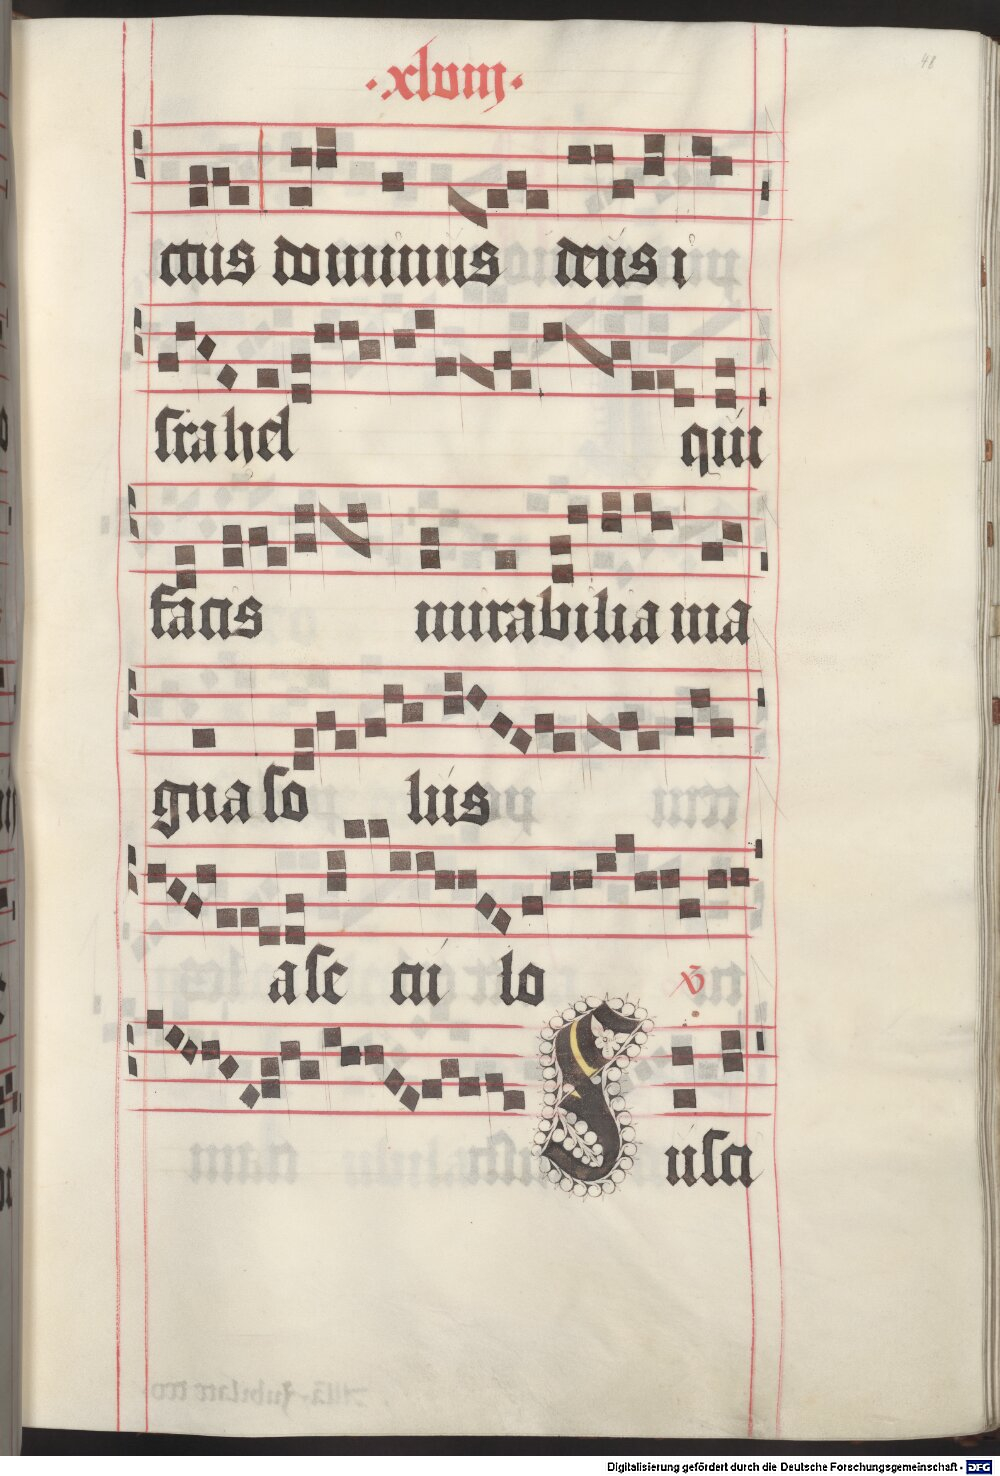 ·xlviij·
48
ctus dominus deus i
srahel qui
facis mirabilia ma
gna so lus
a se cu lo ℣
Susci
Digitalisierung gefördert durch die Deutsche Forschungsgemeinschaft - DFG